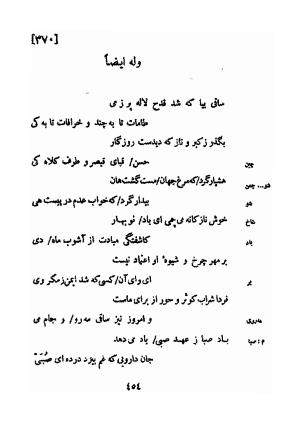 [۳۷۰]
وله ایضاً
ساقی بیا که شد قدح لاله پر ز می
طامات تا به چند و خرافات تا به کی
بگذر ز کبر و ناز که دیدست روزگار
چین
حسن/ قبای قیصر و طرف کلاه کی
شو... چمن
هشیار گرد/ که مرغ جهان/ مست گشت هان
شو
بیدار گرد/ که خواب عدم در پیست هی
شاخ
خوش نازکانه می چمی ای یاد/ نو بهار
باد
کاشفتگی مبادت از آشوب ماه/ دی
بر مهر چرخ و شیوهٔ او اعتماد نیست
بر
ای وای آن/ کسی که شد ایمن ز مکر وی
فردا شراب کوثر و حور از برای ماست
مه‌روی
و امروز نیز ساقی مه‌رو/ و جام می
م: صبا
باد صبا ز عهد صبی/ یاد می‌دهد
جان دارویی که غم ببرد در ده ای صُبَیّ
۴۵۴